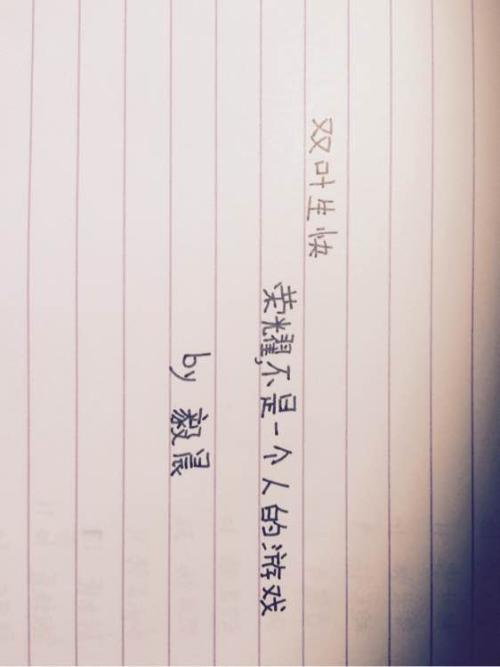 双叶生快
荣耀,不是一个人的游戏
by 毅晨